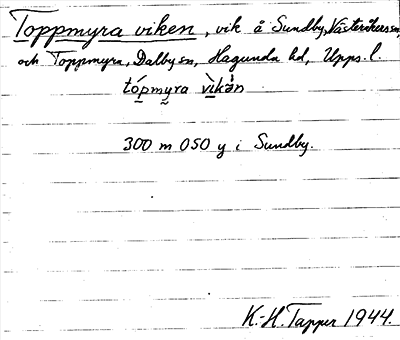 Toppmyra viken, vik å Sundby, Västeråkers sn,
och Toppmyra, Dalby sn, Hagunda hd, Upps. l.
tópmyra vìkàn
300 m OSO y i Sundby.
K.-H. Tapper 1944.